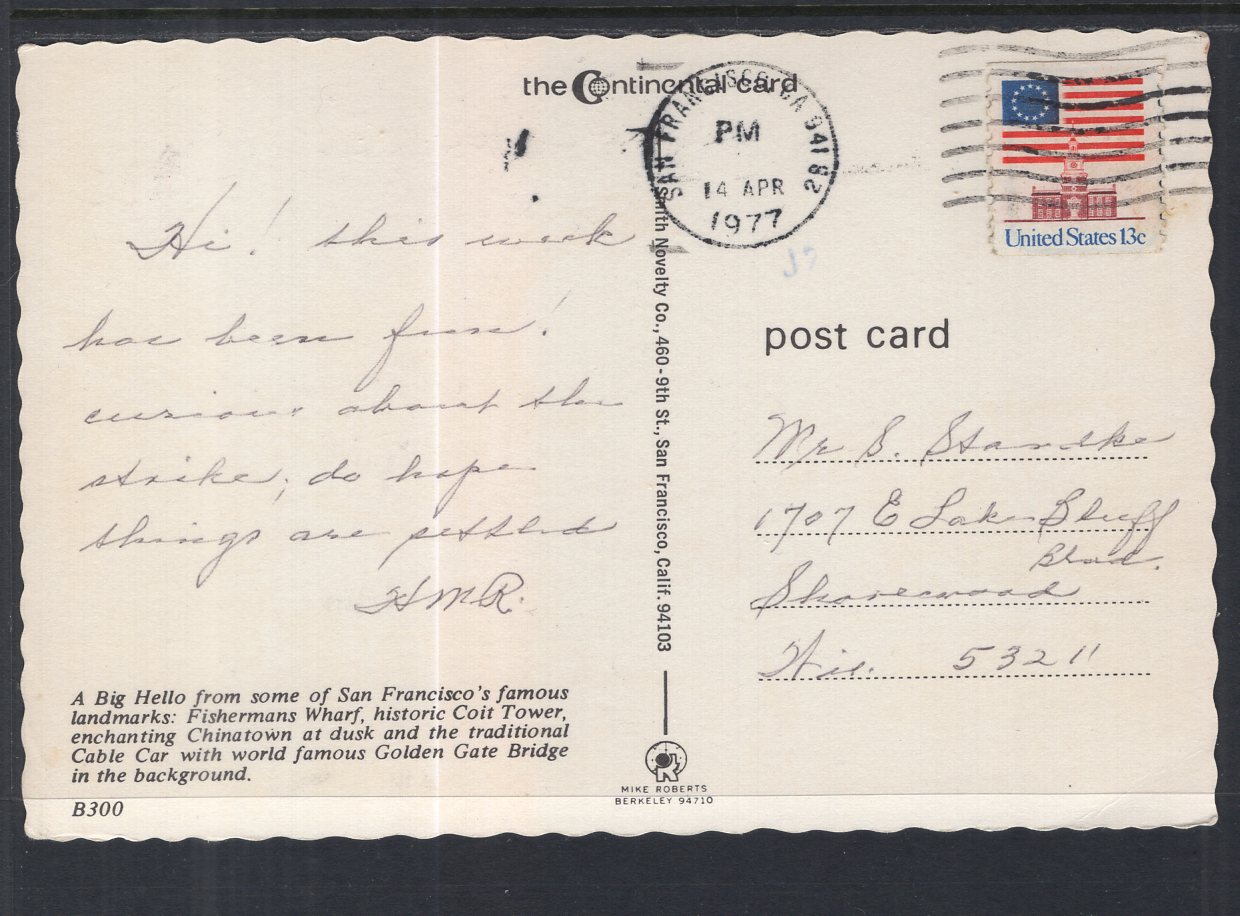 the Continental card
SAN FRANCISCO CA 941
PM
14 APR
1977
28
United States 13c
Hi! this week
has been fun!
curious about the
strike; do hope
things are settled
HMR.
Smith Novelty Co., 460-9th St., San Francisco, Calif. 94103
post card
Mr S. Standke
1707 E Lake Bluff
Blvd.
Shorewood
Wis. 53211
A Big Hello from some of San Francisco's famous
landmarks: Fishermans Wharf, historic Coit Tower,
enchanting Chinatown at dusk and the traditional
Cable Car with world famous Golden Gate Bridge
in the background.
B300
MIKE ROBERTS
BERKELEY 94710